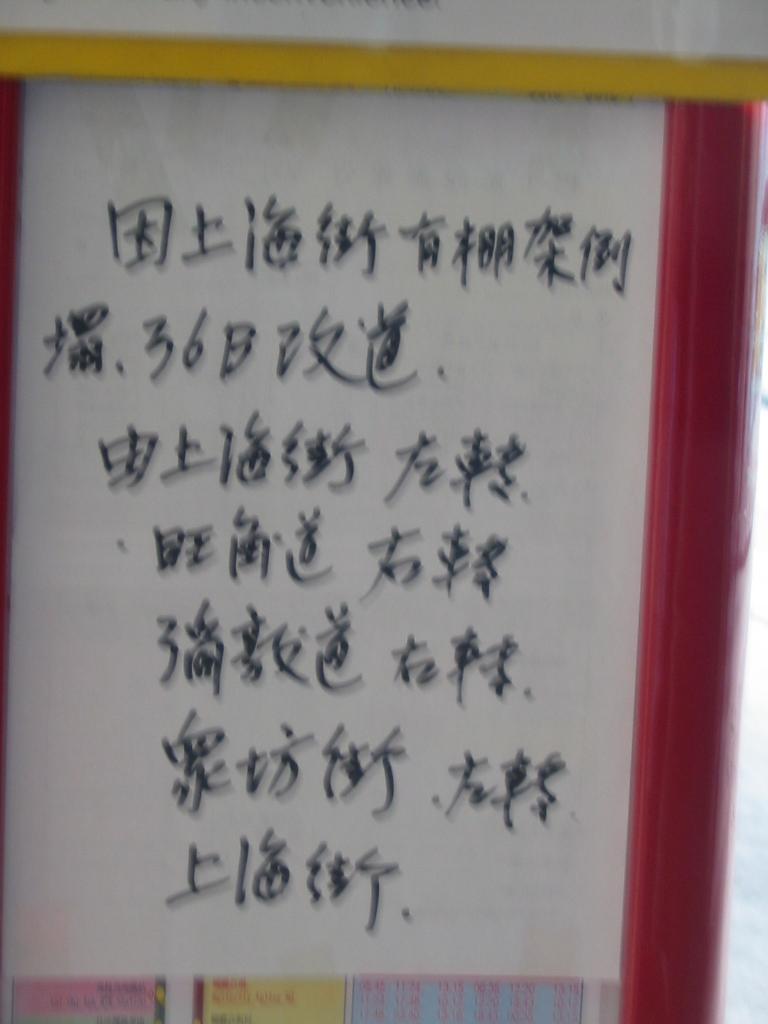 inconvenience.
因上海街有棚架倒
塌、36B改道.
由上海街 左轉.
旺角道 右轉
彌敦道 右轉.
眾坊街.左轉.
上海街.